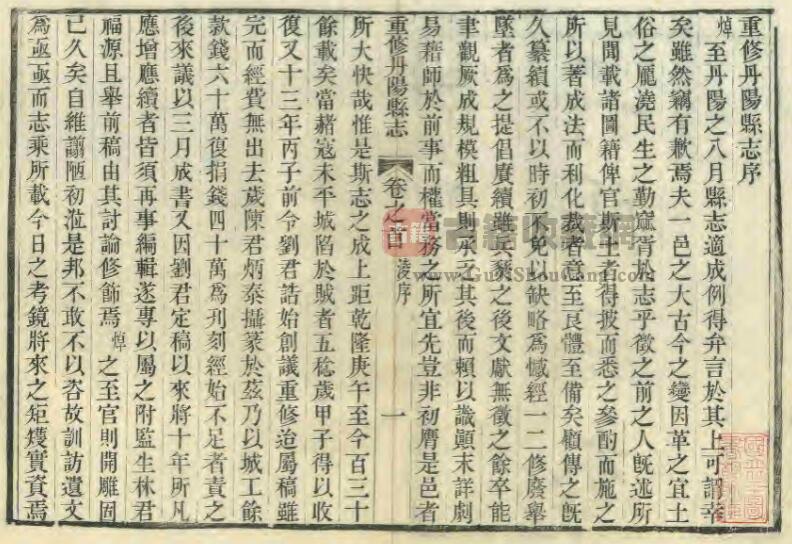 重修丹陽縣志序
焯至丹陽之八月縣志適成例得弁言於其上可謂幸
矣雖然竊有歉焉夫一邑之大古今之變因革之宜土
俗之龐澆民生之勤窳胥於志乎徵之前之人既述所
見聞載諸圖籍俾官斯土者得披而悉之參酌而施之
所以著成法而利化裁者意至良體至備矣顧傳之既
久纂續或不以時初不免以缺略為憾經一二修廢舉
墜者為之提倡賡續雖兵燹之後文獻無徵之餘卒能
聿觀厥成規模粗具則承乎其後而賴以識顛末詳劇
易藉師於前事而權當務之所宜先豈非初膺是邑者
重修丹陽縣志
卷之首
凌序
一
所大快哉惟是斯志之成上距乾隆庚午至今百三十
餘載矣當赭寇未平城陷於賊者五稔歲甲子得以收
復又十三年丙子前令劉君誥始創議重修迨屬稿雖
完而經費無出去歲陳君炳泰攝篆於茲乃以城工餘
款錢六十萬復捐錢四十萬為刋刻經始不足者責之
後來議以三月成書又因劉君定稿以來將十年所凡
應增應續者皆須再事編輯遂專以屬之附監生林君
福源且舉前稿由其討論修飾焉焯之至官則開雕固
已久矣自維謭陋初涖是邦不敢不以咨故訓訪遺文
為亟亟而志乘所載今日之考鏡將來之矩矱實資焉
古籍收藏網
www.GuJiShouCang.com